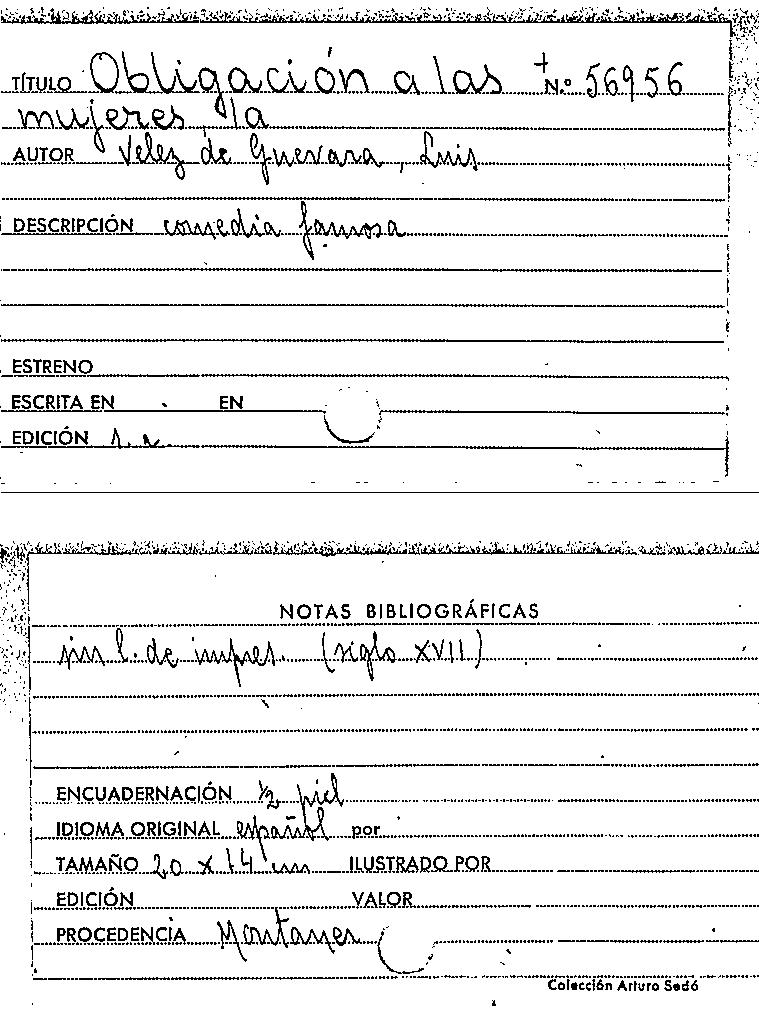 TÍTULO Obligación a las +N.º 56956
mujeres, la
AUTOR Velez de Guevara, Luis
DESCRIPCIÓN comedia famosa
ESTRENO
ESCRITA EN EN
EDICIÓN s. a.
NOTAS BIBLIOGRÁFICAS
sin l. de impres. (siglo XVII)
ENCUADERNACIÓN ½ piel
IDIOMA ORIGINAL español por
TAMAÑO 20 x 14 cm ILUSTRADO POR
EDICIÓN VALOR
PROCEDENCIA Montaner
Colección Arturo Sedó